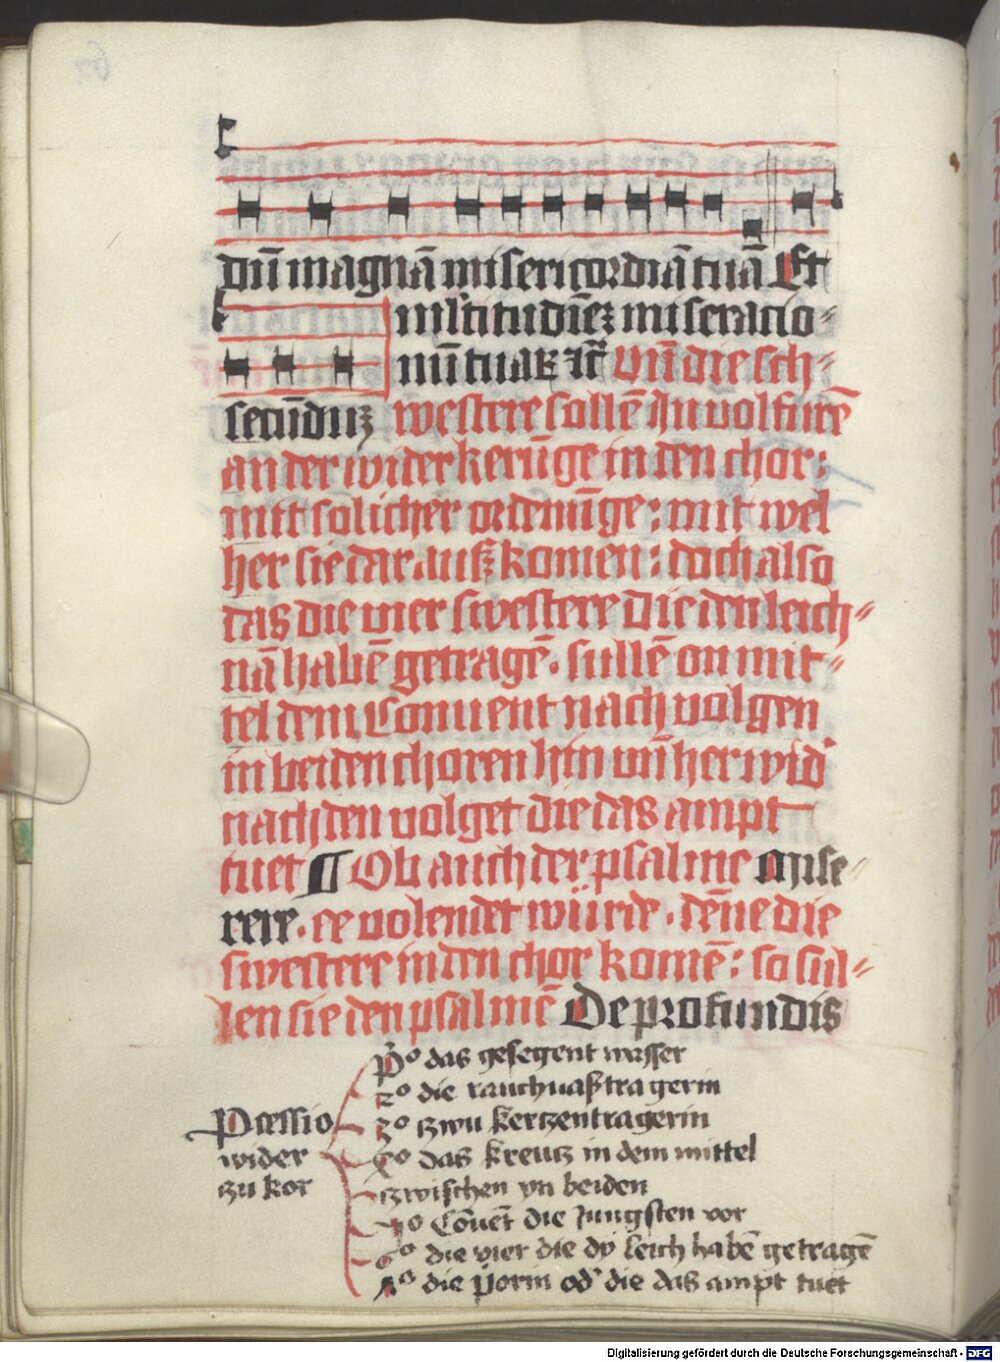 dū magnā misericordiā tuā Et
secūduz
ml̄titudīez miseracio⸗
nū tuaꝝ ꝛc̄ Vn̄ die sch⸗
westere sollē In vol furē
an der widerkerūge in den chor:
mit sōlicher ordenūge: mit wel
her sie dar ausz komen: doch also
das die vier swestere Die den leich⸗
nā habē getragē. sullē on mit⸗
tel dem Conuent nach volgen
in beiden choren hin vn̄ her wid'
nach den volget die das ampt
tuet ¶ Ob auch der psalme Mise⸗
rere. ee volendet würde. dēne die
swestere in den chor komē: so sul⸗
len sie den psalmē De profundis
Pcessio
wider
zu kor
P'º das gesegent wasser
2º die rauchuasz tragerin
3º zwu kertzentragerin
4º das kreutz in dem mittel
zwischen yn beiden
5º Cōuēt die Jungsten vor
6º die vier die dy leich habē getragē
7º die Priorin od' die das ampt tuet
Digitalisierung gefördert durch die Deutsche Forschungsgemeinschaft - DFG